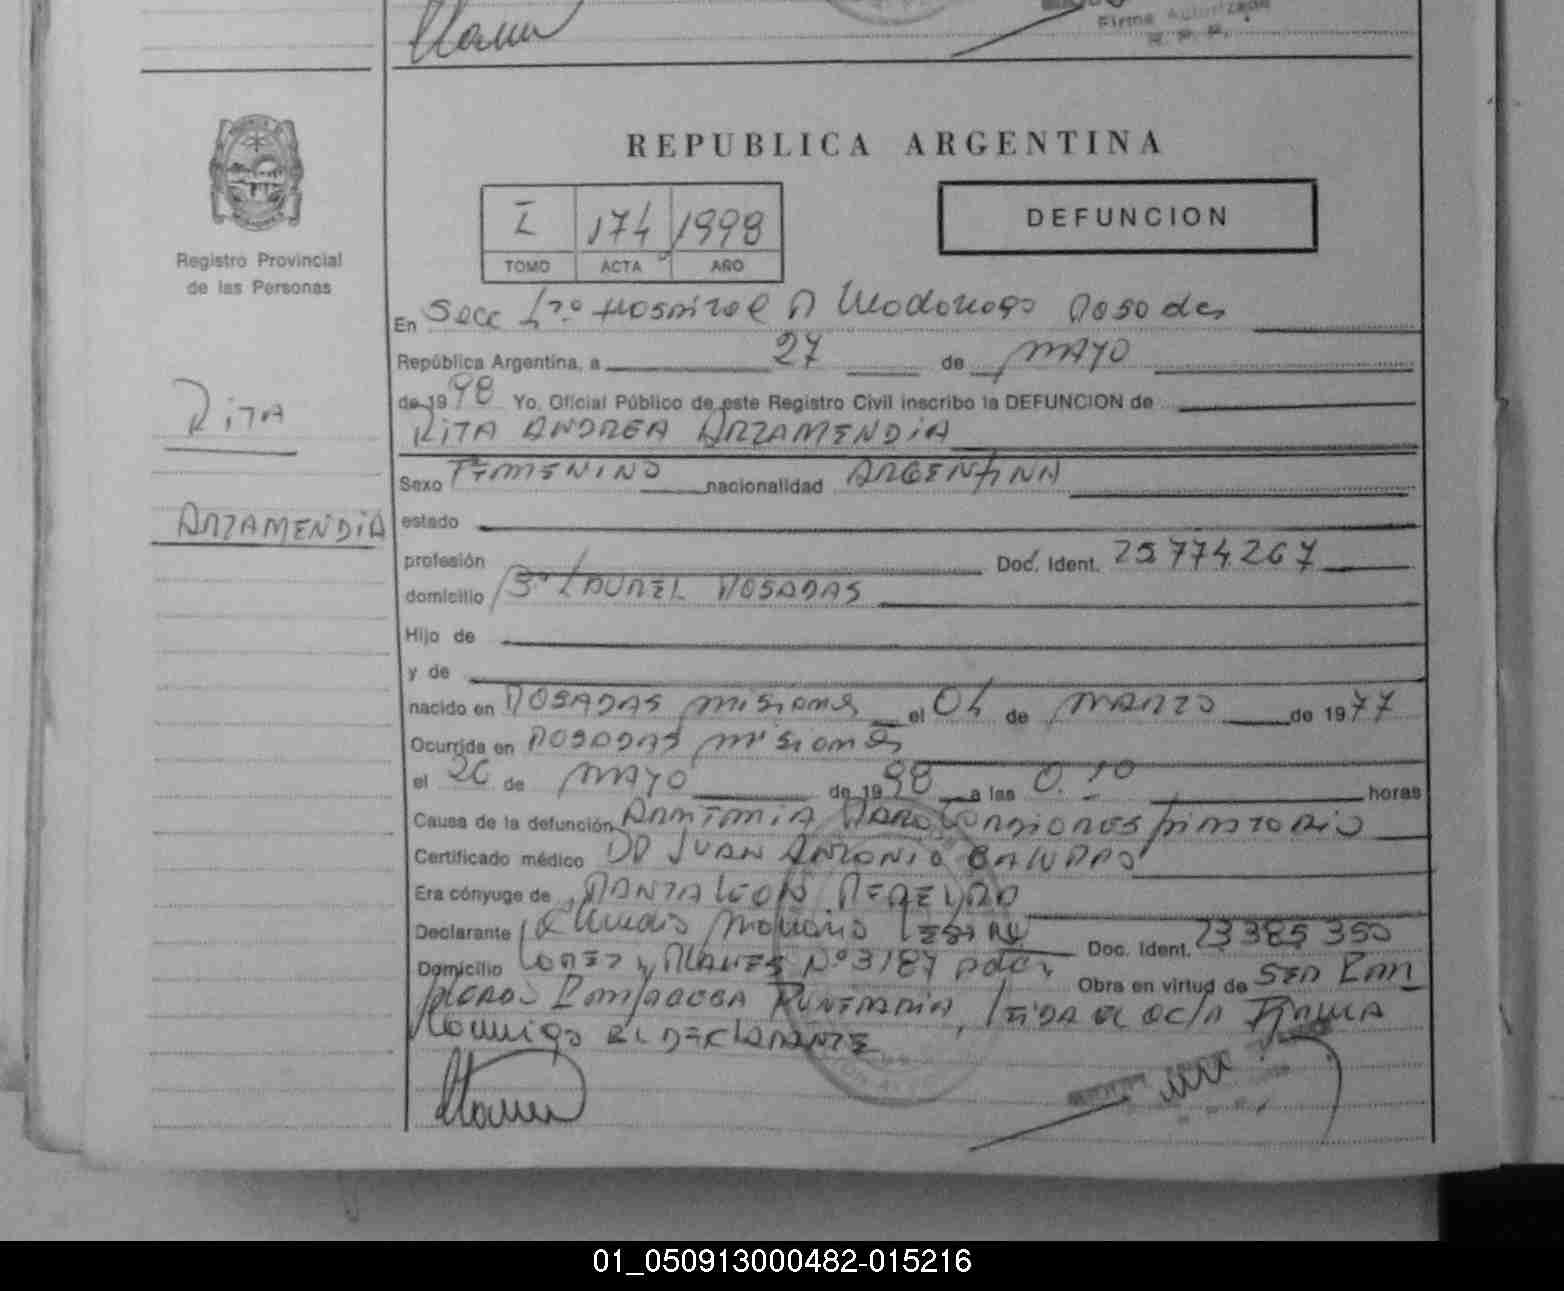 Firma Autorizada
R. P. P.
REPUBLICA ARGENTINA
I 174 1998
TOMO ACTA AÑO
DEFUNCION
Registro Provincial
de las Personas
En Secc 1ra Hospital R Madariaga Posadas
República Argentina, a 27 de MAYO
de 1998 Yo, Oficial Público de este Registro Civil inscribo la DEFUNCION de
RITA ANDREA ARZAMENDIA
RITA
ARZAMENDIA
Sexo FEMENINO nacionalidad ARGENTINA
estado
profesión Doc. Ident. 25774267
domicilio Bo LAUREL POSADAS
Hijo de
y de
nacido en POSADAS misiones el 04 de MARZO de 1977
Ocurrida en POSADAS misiones
el 26 de MAYO de 1998 a las 0.10 horas
Causa de la defunción PARO CARDIORESPIRATORIO
Certificado médico DR JUAN ANTONIO
Era cónyuge de PANTALEON PEREYRA
Declarante Doc. Ident. 23385350
Domicilio LOPEZ y PLANES No 3187 Pdas Obra en virtud de SER EM
PLEADO EMPRESA FUNERARIA, LEIDA EL ACTA FIRMA
Conmigo EL DECLARANTE
01_050913000482-015216